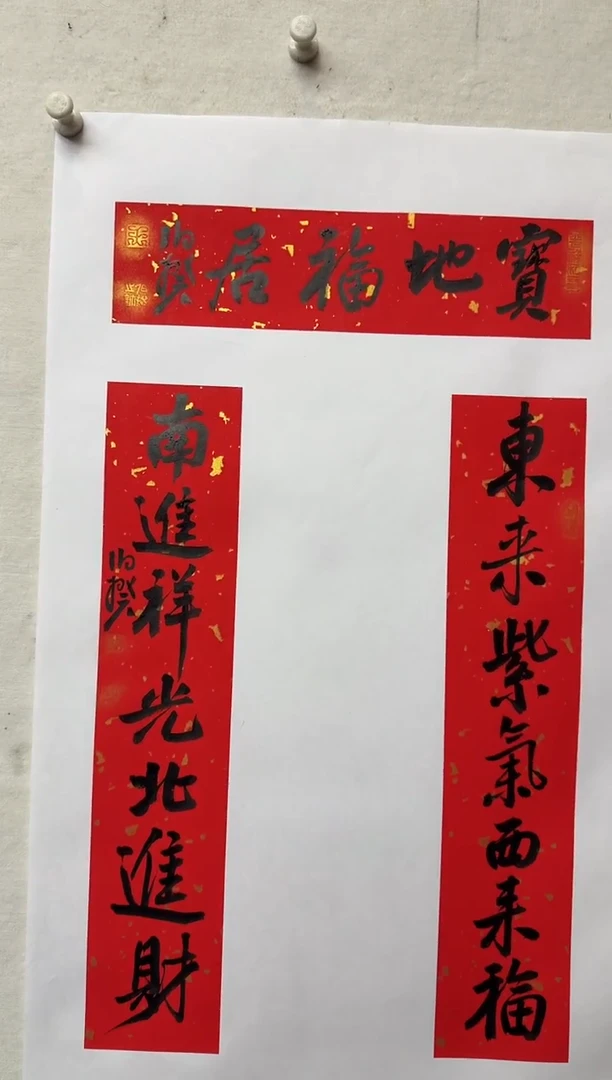 寶地福居
東来紫氣西来福
南進祥光北進財